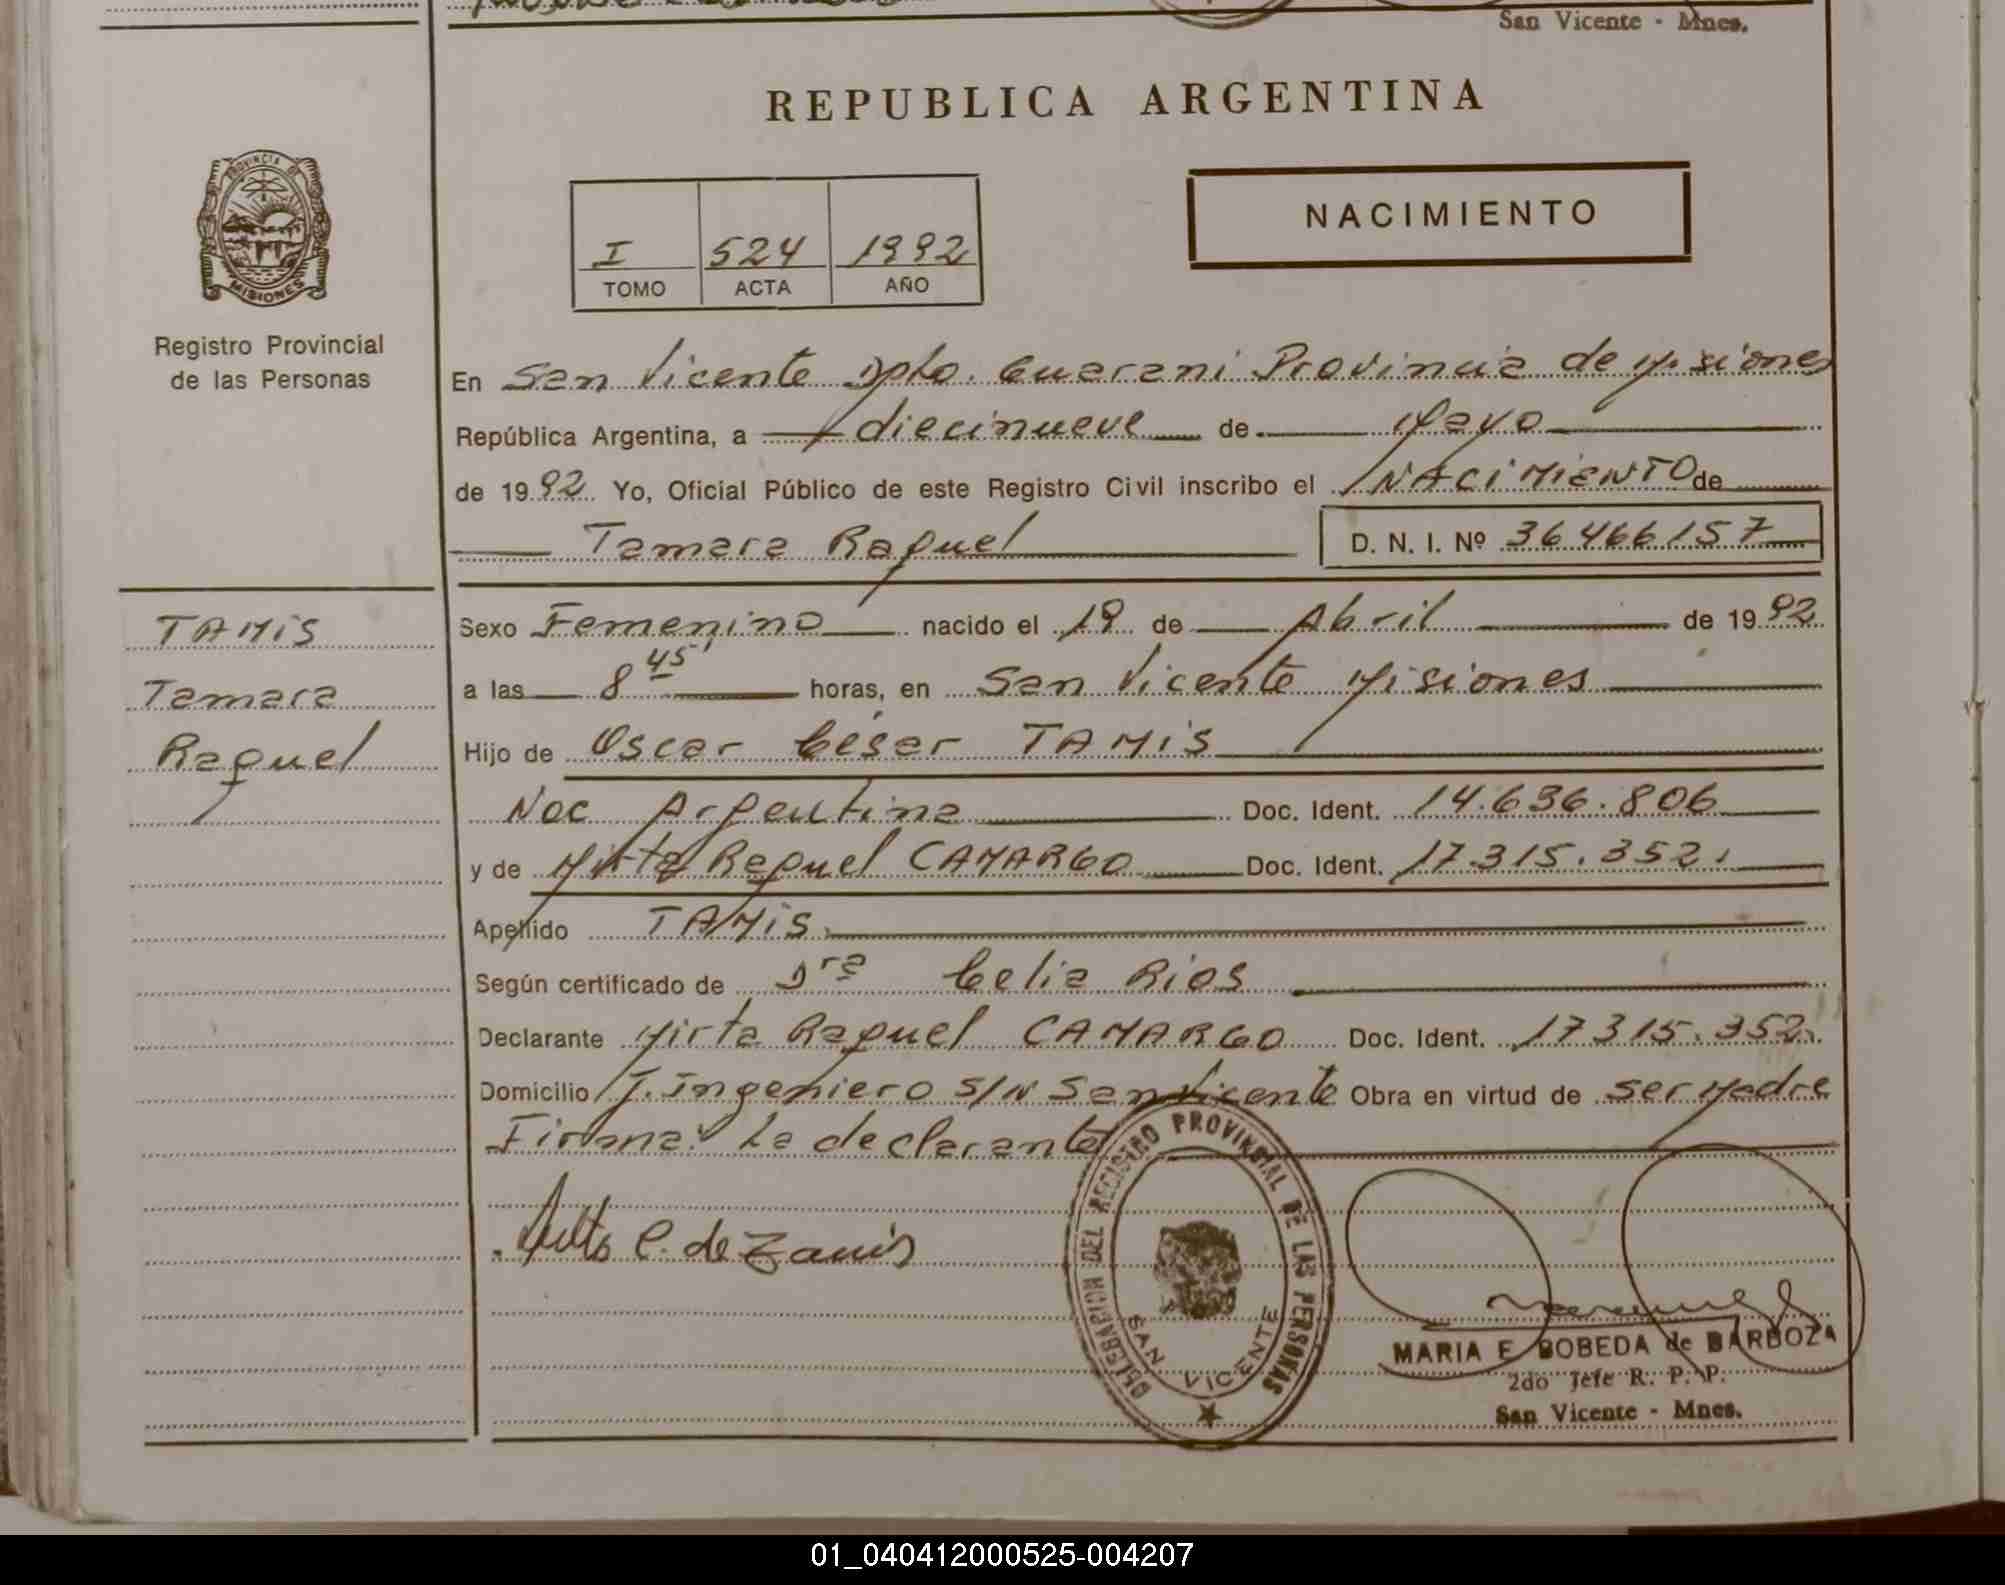 San Vicente - Mnes.
REPUBLICA ARGENTINA
PROVINCIA DE
MISIONES
Registro Provincial
de las Personas
I 524 1992
TOMO ACTA AÑO
NACIMIENTO
En San Vicente Dpto. Guarani Provincia de Misiones
República Argentina, a diecinueve de Mayo
de 1992 Yo, Oficial Público de este Registro Civil inscribo el NACIMIENTO de
Tamara Raquel D. N. I. Nº 36466157
TAMIS
Tamara
Raquel
Sexo Femenino nacido el 19 de Abril de 1992
a las 8 45' horas, en San Vicente Misiones
Hijo de Oscar César TAMIS
Nac Argentina Doc. Ident. 14.636.806
y de Mirta Raquel CAMARGO Doc. Ident. 17.315.352.
Apellido TAMIS
Según certificado de Dra Celia Rios
Declarante Mirta Raquel CAMARGO Doc. Ident. 17315.352.
Domicilio J. Ingeniero S/N San Vicente Obra en virtud de ser Madre
Firma: La declarante
C. de
DEL REGISTRO PROVINCIAL DE LAS PERSONAS
SAN VICENTE
MARIA E BOBEDA de BARBOZA
2do Jefe R. P. P.
San Vicente - Mnes.
01_040412000525-004207